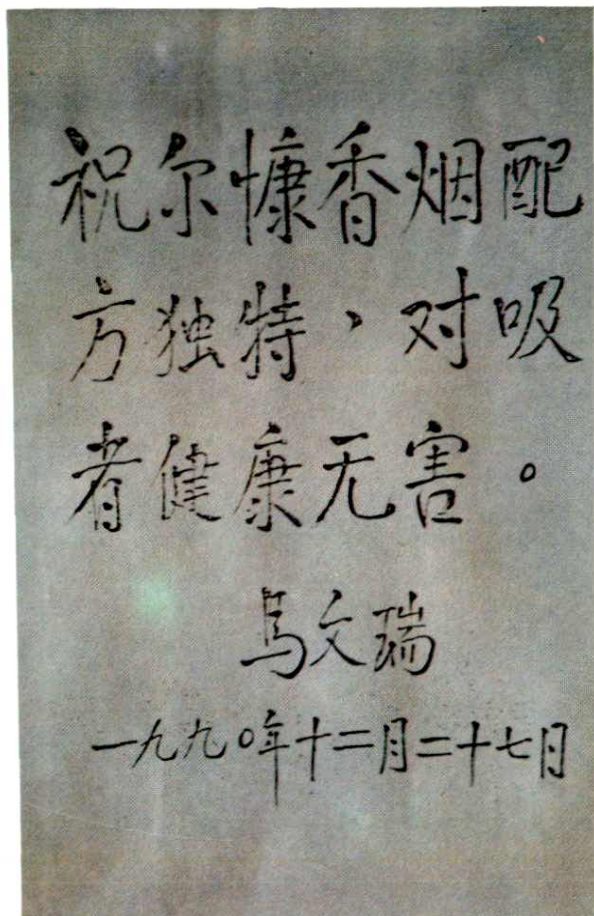 祝尔慷香烟配
方独特,对吸
者健康无害。
马文瑞
一九九〇年十二月二十七日